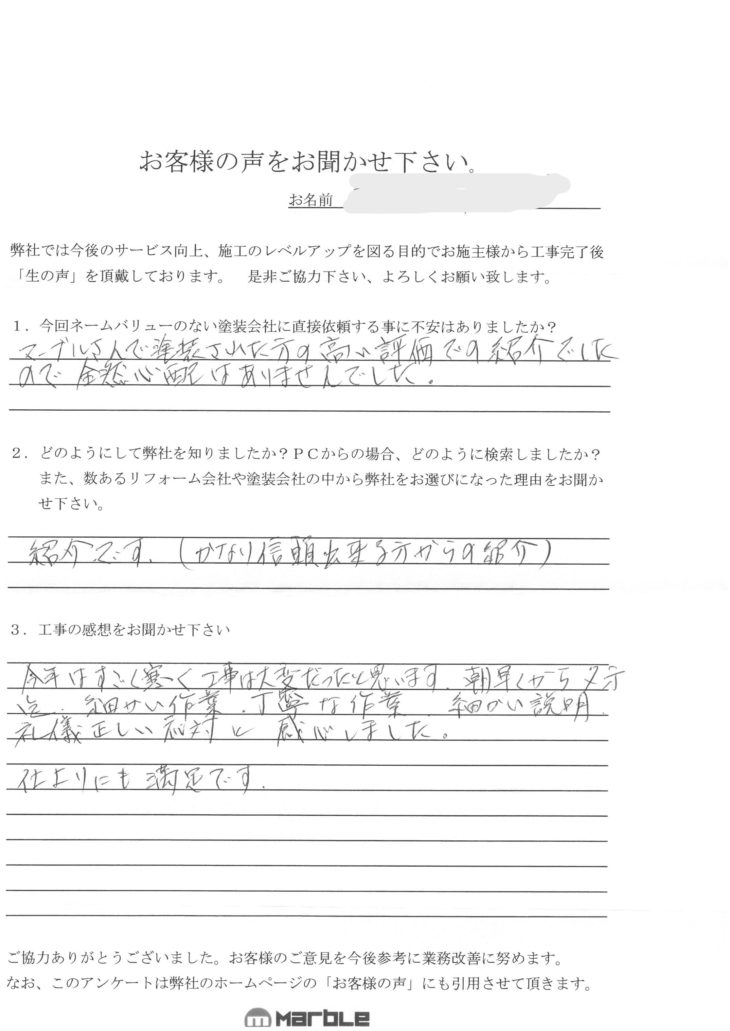 お客様の声をお聞かせ下さい。
お名前
弊社では今後のサービス向上、施工のレベルアップを図る目的でお施主様から工事完了後
「生の声」を頂戴しております。　是非ご協力下さい、よろしくお願い致します。
１．今回ネームバリューのない塗装会社に直接依頼する事に不安はありましたか？
マーブルさんで塗装された方の高い評価での紹介でした
ので 全然心配はありませんでした。
２．どのようにして弊社を知りましたか？ＰＣからの場合、どのように検索しましたか？
また、数あるリフォーム会社や塗装会社の中から弊社をお選びになった理由をお聞か
せ下さい。
紹介です。(かなり信頼出来る方からの紹介)
３．工事の感想をお聞かせ下さい
今年はすごく寒く工事は大変だったと思います。朝早くから夕方
迄、細かい作業、丁寧な作業　細かい説明、
礼儀正しい応対と 感心しました。
仕上りにも満足です。
ご協力ありがとうございました。お客様のご意見を今後参考に業務改善に努めます。
なお、このアンケートは弊社のホームページの「お客様の声」にも引用させて頂きます。
marble